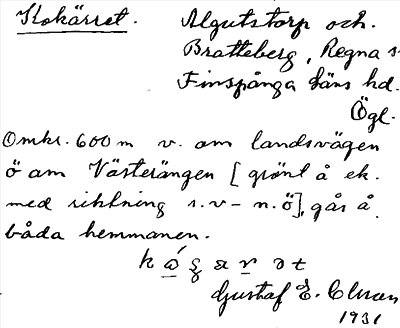 Kokärret. Algutstorp och.
Bratteberg, Regna s:n
Finspånga läns hd.
Ögl.
Omkr. 600 m v. om landsvägen
ö om Västerängen [grönt å ek.
med riktning s.v - n.ö], går å
båda hemmanen.
Gustaf E. Olsson
1931